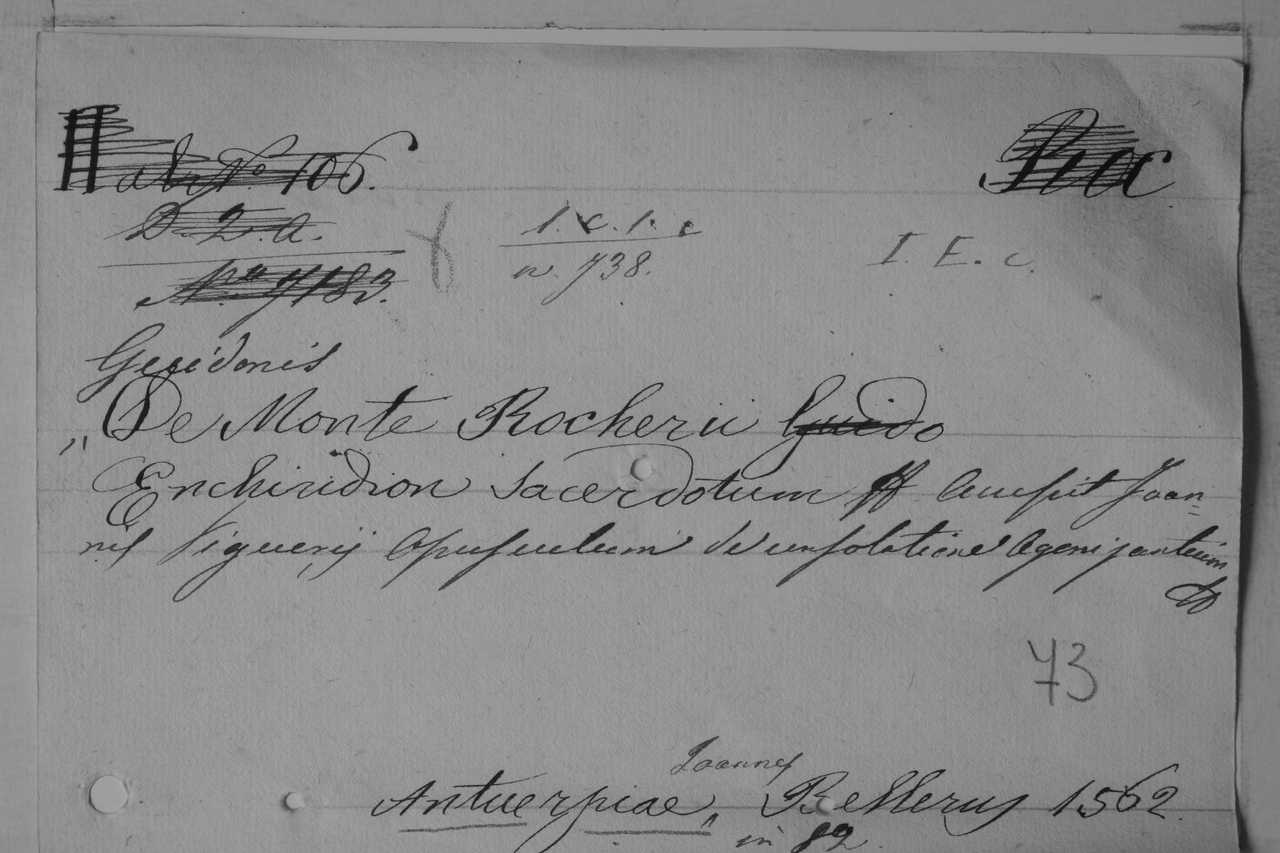 No 106.
D. 2. a.
No 7183.
1. c. 1. c
n. 738.
I. E. c.
Guidonis
„De Monte Rocherii Guido
Enchiridion sacerdotum Accessit Joan=
nis Viguerij Opusculum de consolatione Agonizantium
73
Joannes
Antuerpiae, Bellerus 1562.
in 8º.